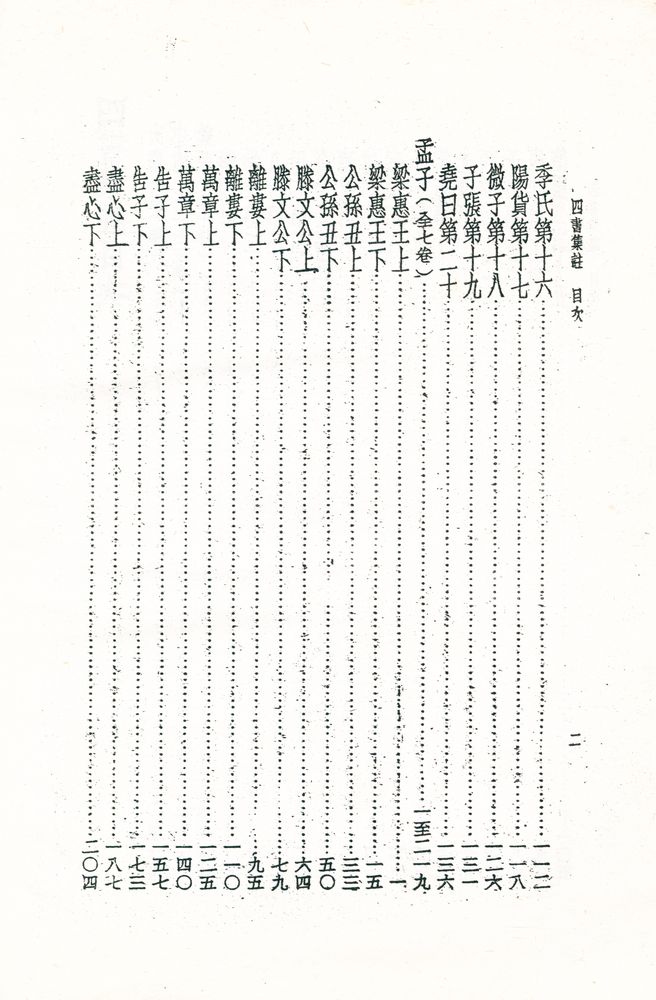 四書集註　目次
二
季氏第十六……一一二
陽貨第十七……一一八
微子第十八……一二六
子張第十九……一三一
堯曰第二十……一三六
孟子（全七卷）……一至二一九
梁惠王上……一
梁惠王下……一五
公孫丑上……三三
公孫丑下……五〇
滕文公上……六四
滕文公下……七九
離婁上……九五
離婁下……一一〇
萬章上……一二五
萬章下……一四〇
告子上……一五七
告子下……一七三
盡心上……一八七
盡心下……二〇四